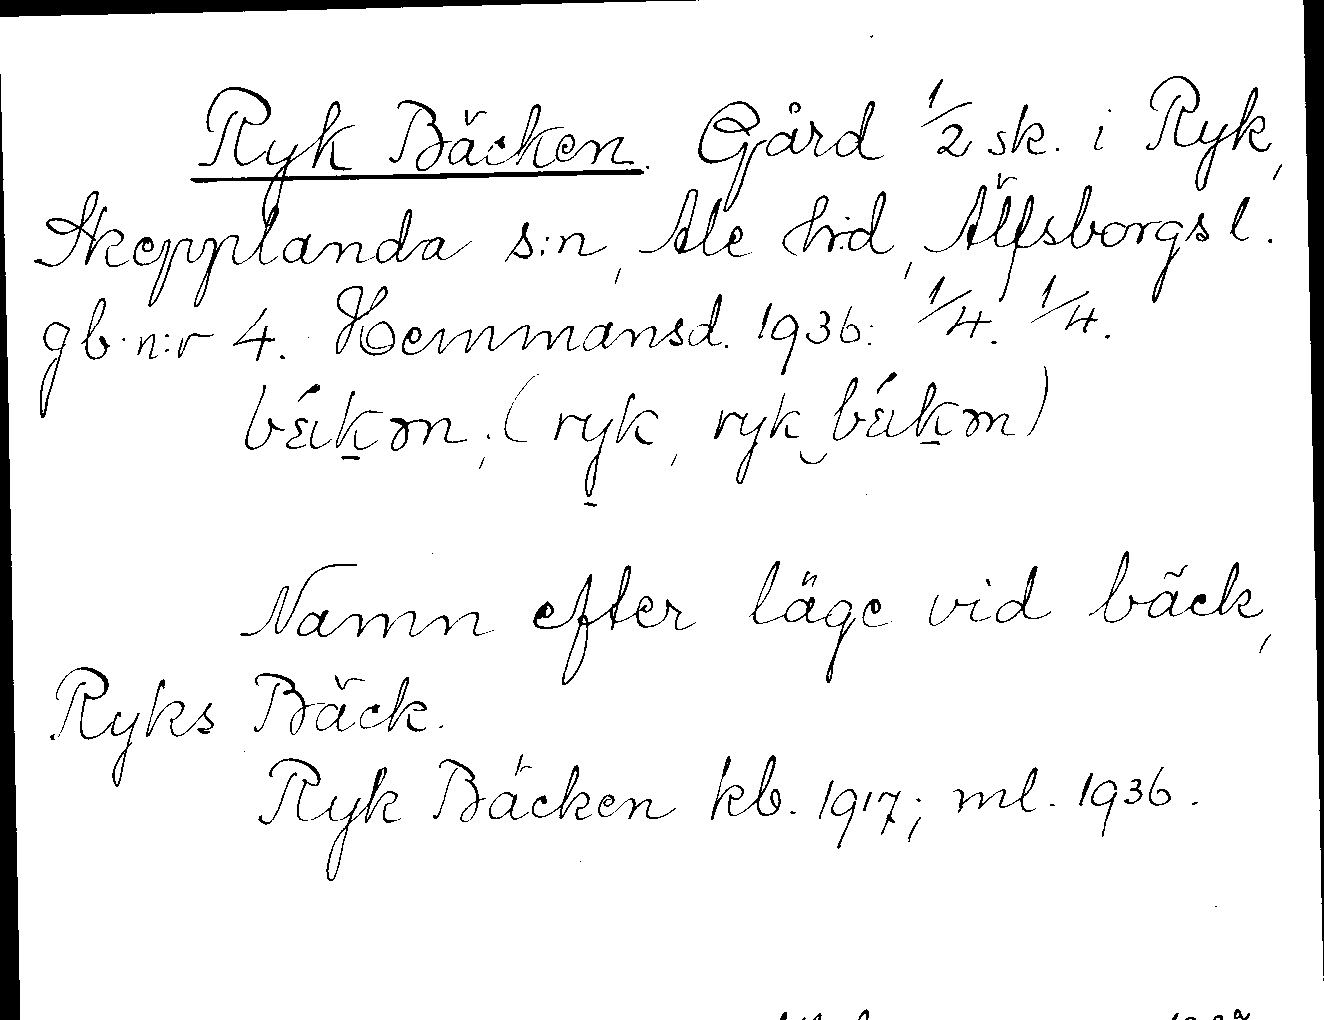 Ryk Bäcken. Gård 1/2 sk. i Ryk,
Skepplanda s:n, Ale h:d, Älfsborgs l.
gb. n:r 4. Hemmansd. 1936: 1/4. 1/4.
(ryk, ryk
Namn efter läge vid bäck,
Ryks Bäck.
Ryk Bäcken kb. 1917; ml. 1936.